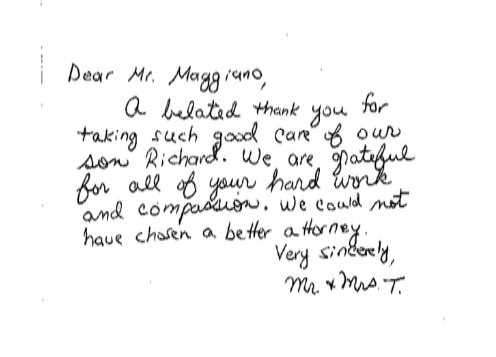 Dear Mr. Maggiano,
A belated thank you for
taking such good care of our
son Richard. We are grateful
for all of your hard work
and compassion. We could not
have chosen a better attorney.
Very sincerely,
Mr. & Mrs. T.